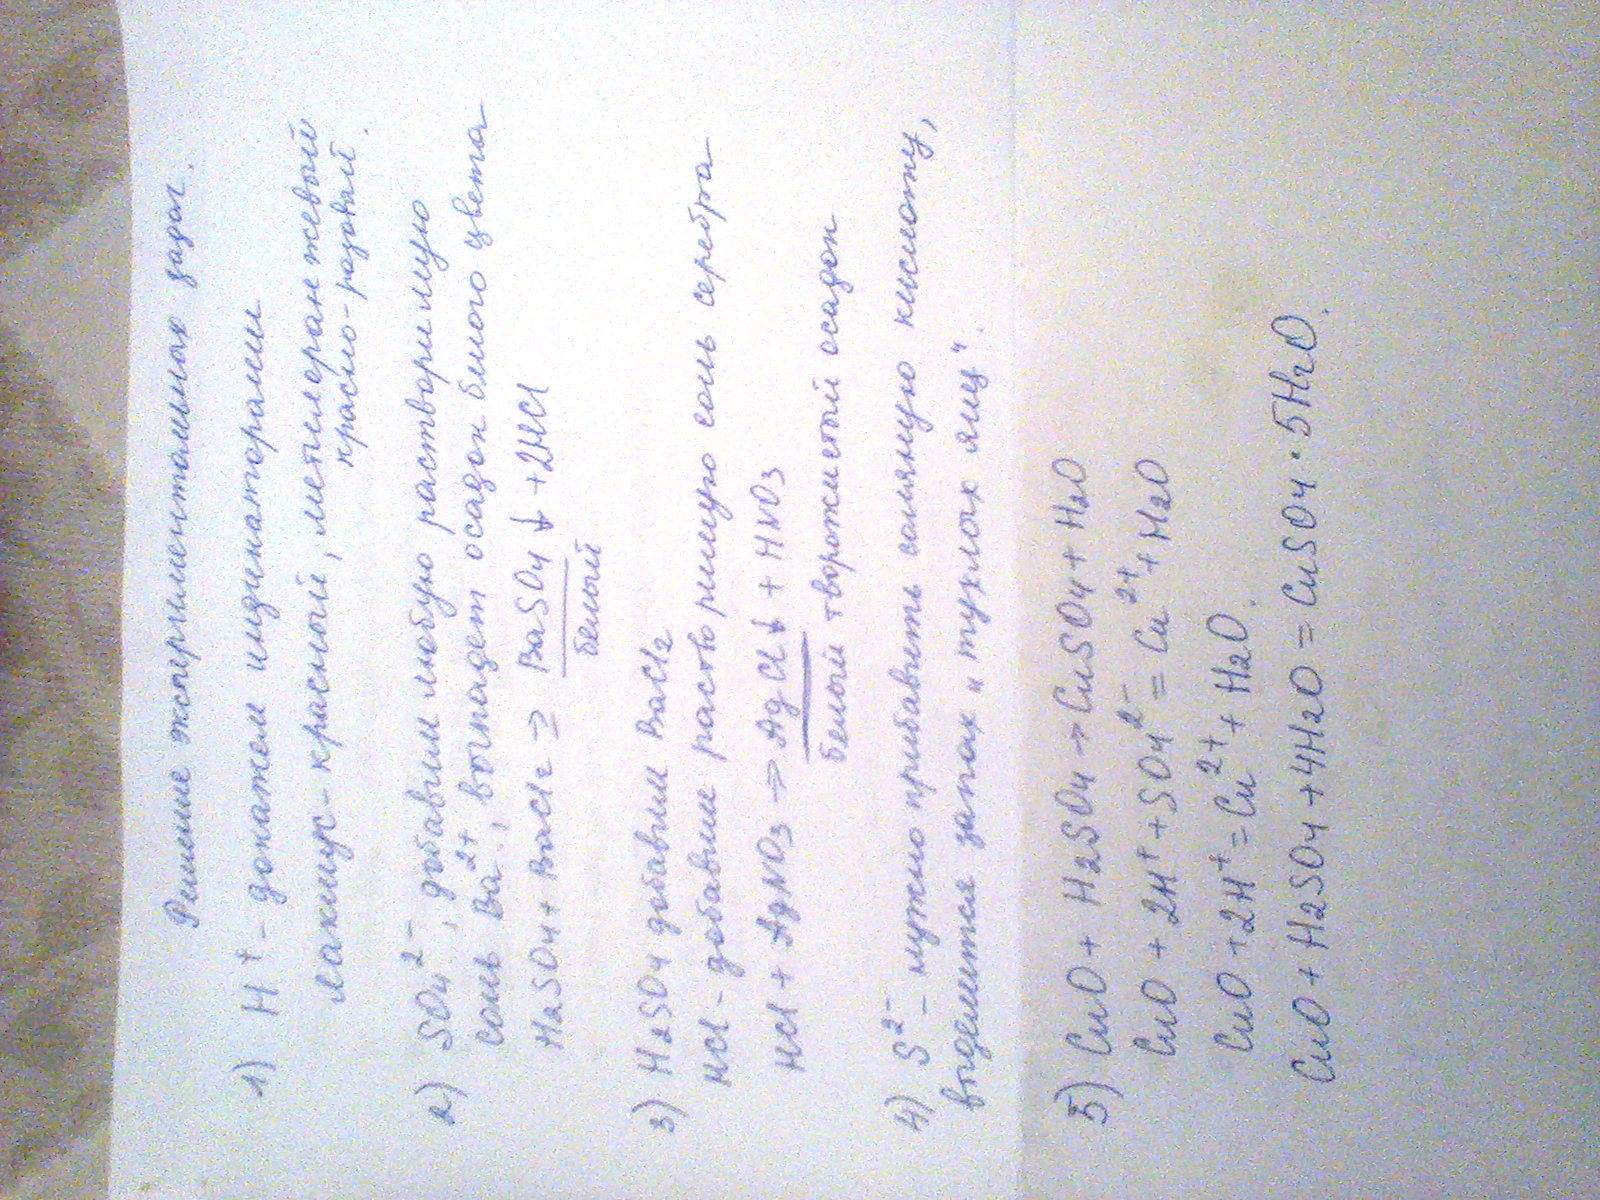 Решение экспериментальных задач.
1) H⁺ - докажем индикаторами
лакмус - красный, метилоранжевый
красно-розовый.
2) SO₄²⁻, добавим любую растворимую
соль Ba²⁺, выпадет осадок белого цвета
H₂SO₄ + BaCl₂ = BaSO₄↓ + 2HCl
белый
3) H₂SO₄ добавим BaCl₂
HCl - добавим растворимую соль серебра
HCl + AgNO₃ → AgCl↓ + HNO₃
белый творожистый осадок
4) S²⁻ - нужно прибавить соляную кислоту,
выделится запах "тухлых яиц".
5) CuO + H₂SO₄ → CuSO₄ + H₂O
CuO + 2H⁺ + SO₄²⁻ = Cu²⁺ + H₂O
CuO + 2H⁺ = Cu²⁺ + H₂O.
CuO + H₂SO₄ + 4H₂O = CuSO₄ · 5H₂O.